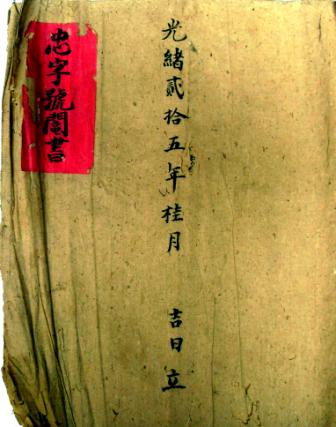 光緒貳拾五年桂月 吉日立
忠字號鬮書